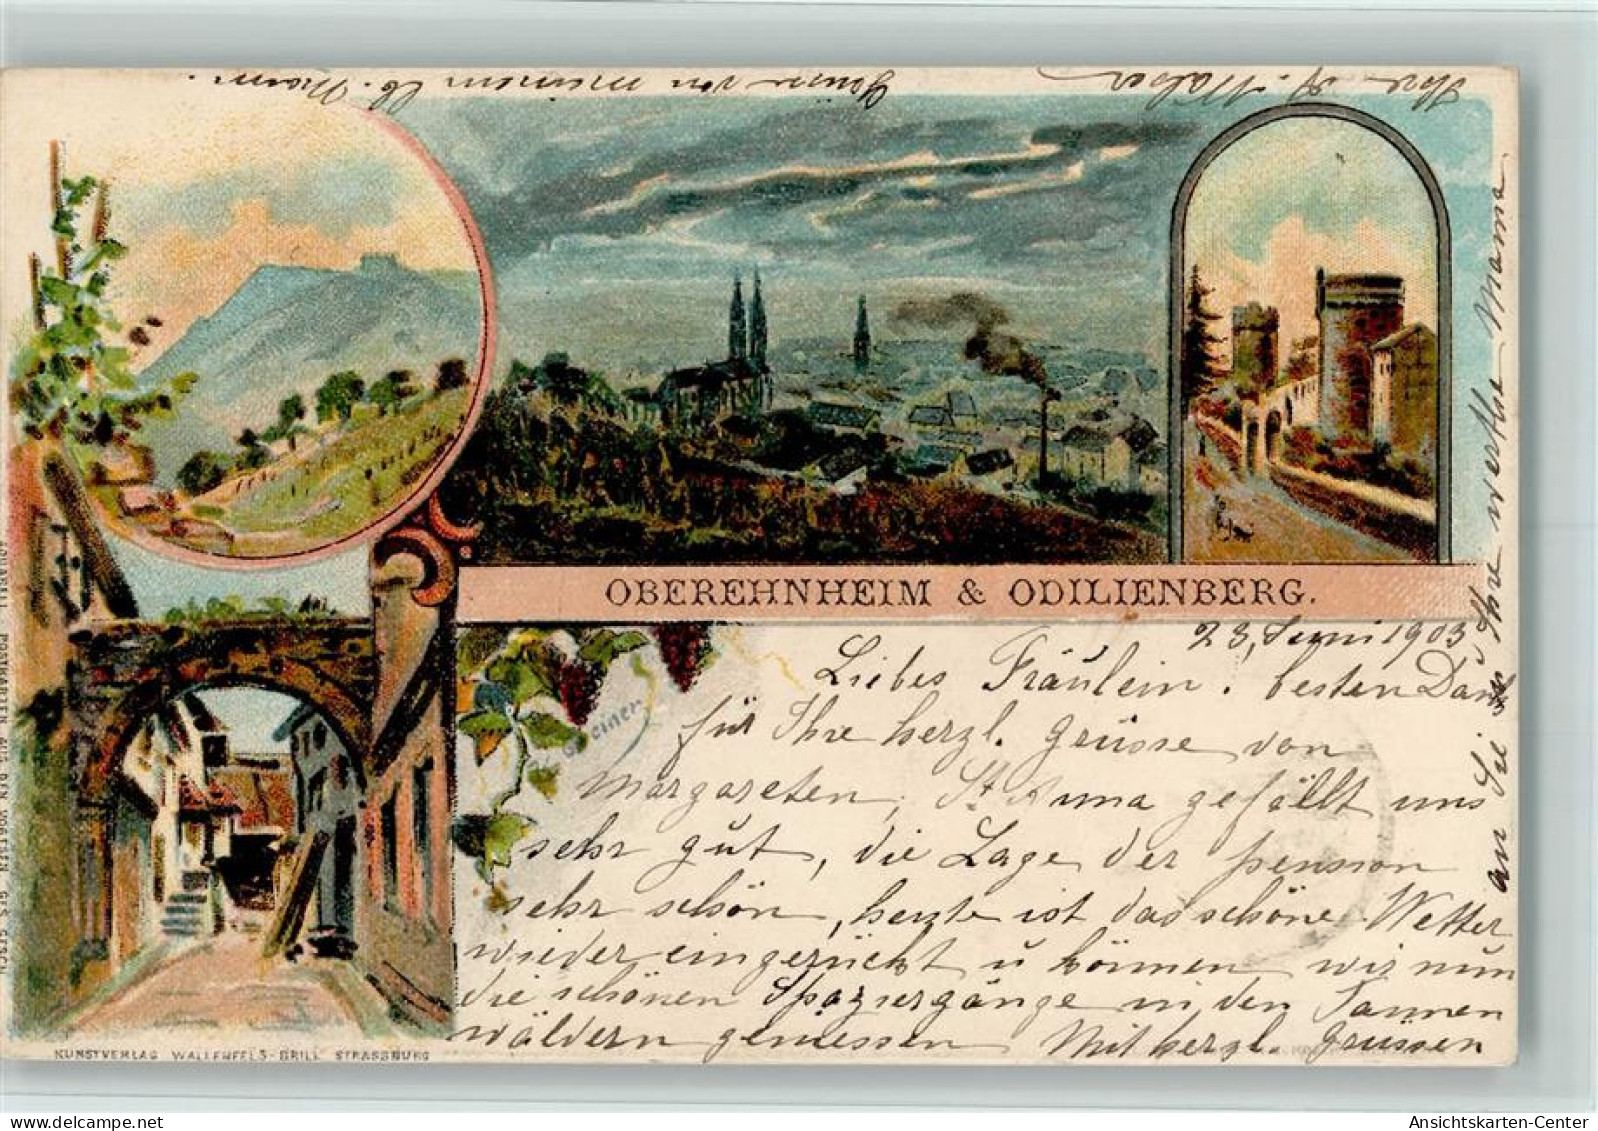 OBEREHNHEIM & ODILIENBERG.
23, Juni 1903
Liebes Fräulein. besten Dank
für Ihre herzl. Grüsse von
Margareten, St Anna gefällt uns
sehr gut, die Lage der pension
sehr schön, heute ist das schöne Wetter
wieder eingerückt u können wir nun
die schönen Spaziergänge in den Tannen
wäldern geniessen Mit herzl. Grüssen
an Sie u Ihre werthe Mama
Ihre A.
Grüsse von meinem lb. Mann.
KUNSTVERLAG WALLENFELS-BRILL STRASSBURG
AQUARELL-POSTKARTEN AUS DEN VOGESEN. GES. GESCH.
Ansichtskarten-Center